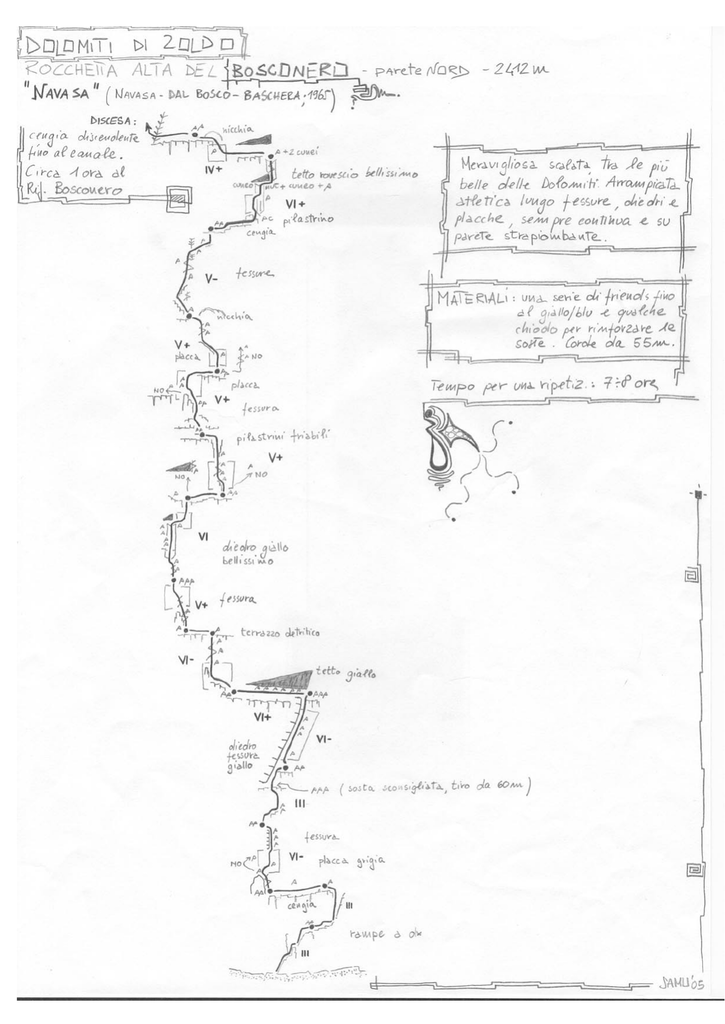 DOLOMITI DI ZOLDO
ROCCHETTA ALTA DEL BOSCONERO - parete NORD - 2412 m
"NAVASA" (NAVASA - DAL BOSCO - BASCHERA, 1965)
DISCESA:
cengia discendente
fino al canale.
Circa 1 ora al
Rif. Bosconero
nicchia
IV+
A + 2 cunei
tetto rovescio bellissimo
VI+
pilastrino
cengia
V-
fessure
nicchia
V+
placca
NO
NO
placca
V+
fessura
pilastrini friabili
V+
NO
NO
VI
diedro giallo
bellissimo
AAA
V+
fessura
terrazzo detritico
VI-
tetto giallo
AAA
VI+
VI-
diedro
fessura
giallo
AA
AAA (sosta sconsigliata, tiro da 60m)
III
AA
fessura
VI-
placca grigia
NO
AA
cengia
III
AA
rampe a dx
III
Meravigliosa scalata, tra le più
belle delle Dolomiti. Arrampicata
atletica lungo fessure, diedri e
placche, sempre continua e su
parete strapiombante.
MATERIALI: una serie di friends fino
al giallo/blu e qualche
chiodo per rinforzare le
soste. Corde da 55m.
Tempo per una ripetiz.: 7÷8 ore
SAMU'05